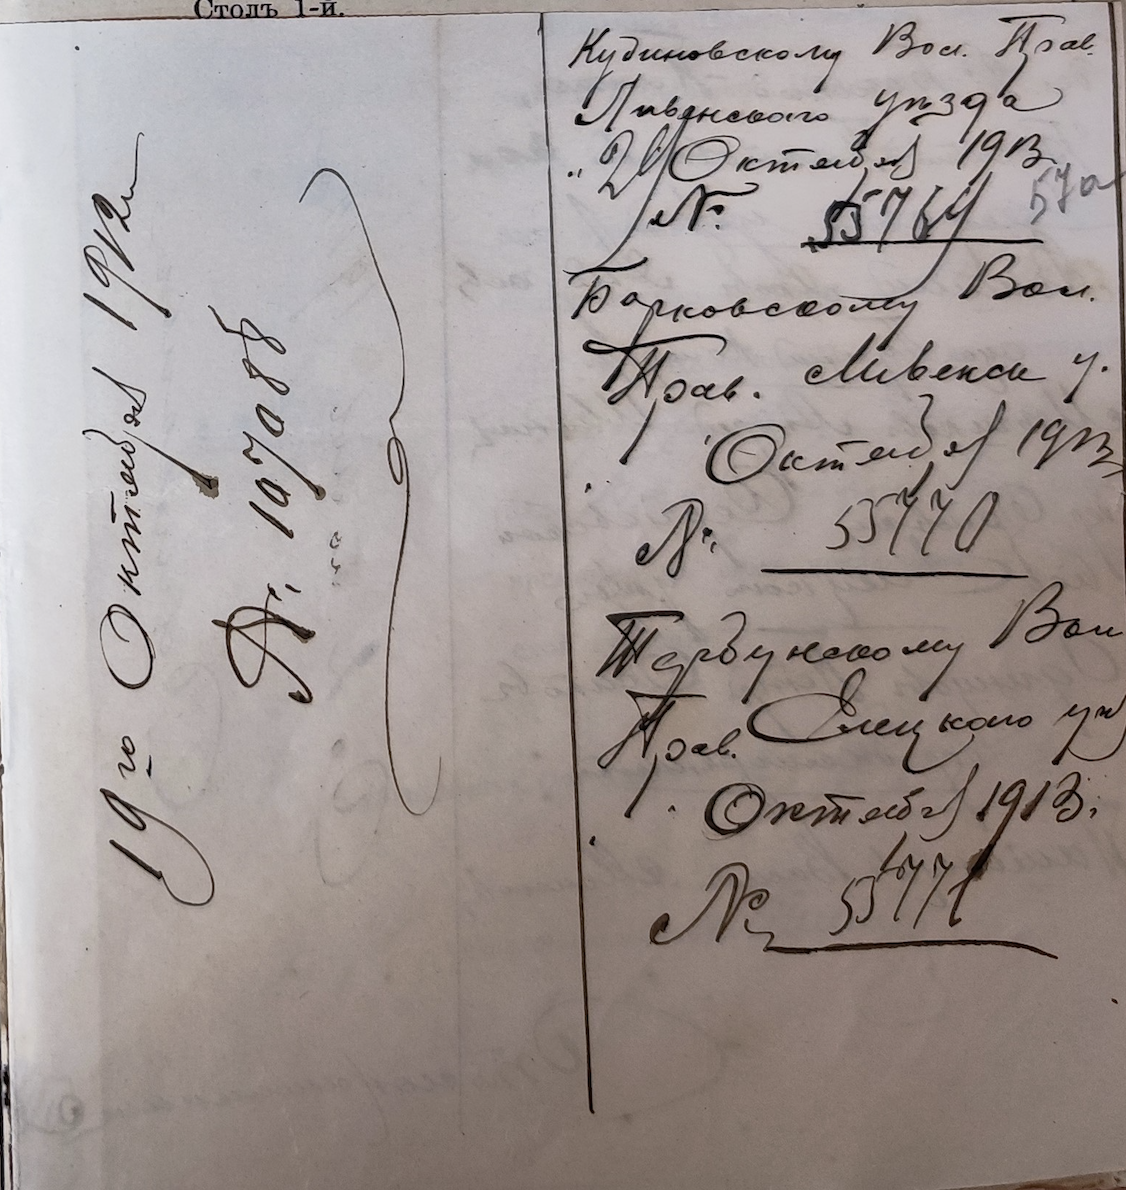 Столъ 1-й.
19го Октября 1912 г.
№ 10788
Кудиновскому Вол. Прав.
Ливенскаго уѣзда
"26 Октября 1913
№ 55769
57а
Борковскому Вол.
Прав. Ливенск у.
Октября 1913
№ 55770
Тербунскому Вол
Прав. Елецкаго уѣз
Октября 1913.
№ 55771